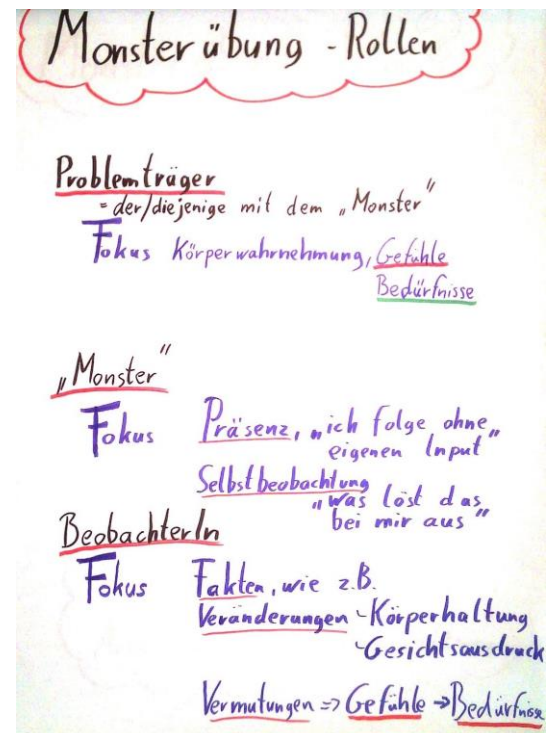 Monsterübung - Rollen
Problemträger
= der/diejenige mit dem „Monster"
Fokus Körperwahrnehmung, Gefühle
Bedürfnisse
„Monster"
Fokus Präsenz, „ich folge ohne
eigenen Input"
Selbstbeobachtung
„was löst das
bei mir aus"
BeobachterIn
Fokus Fakten, wie z.B.
Veränderungen - Körperhaltung
- Gesichtsausdruck
Vermutungen => Gefühle -> Bedürfnisse